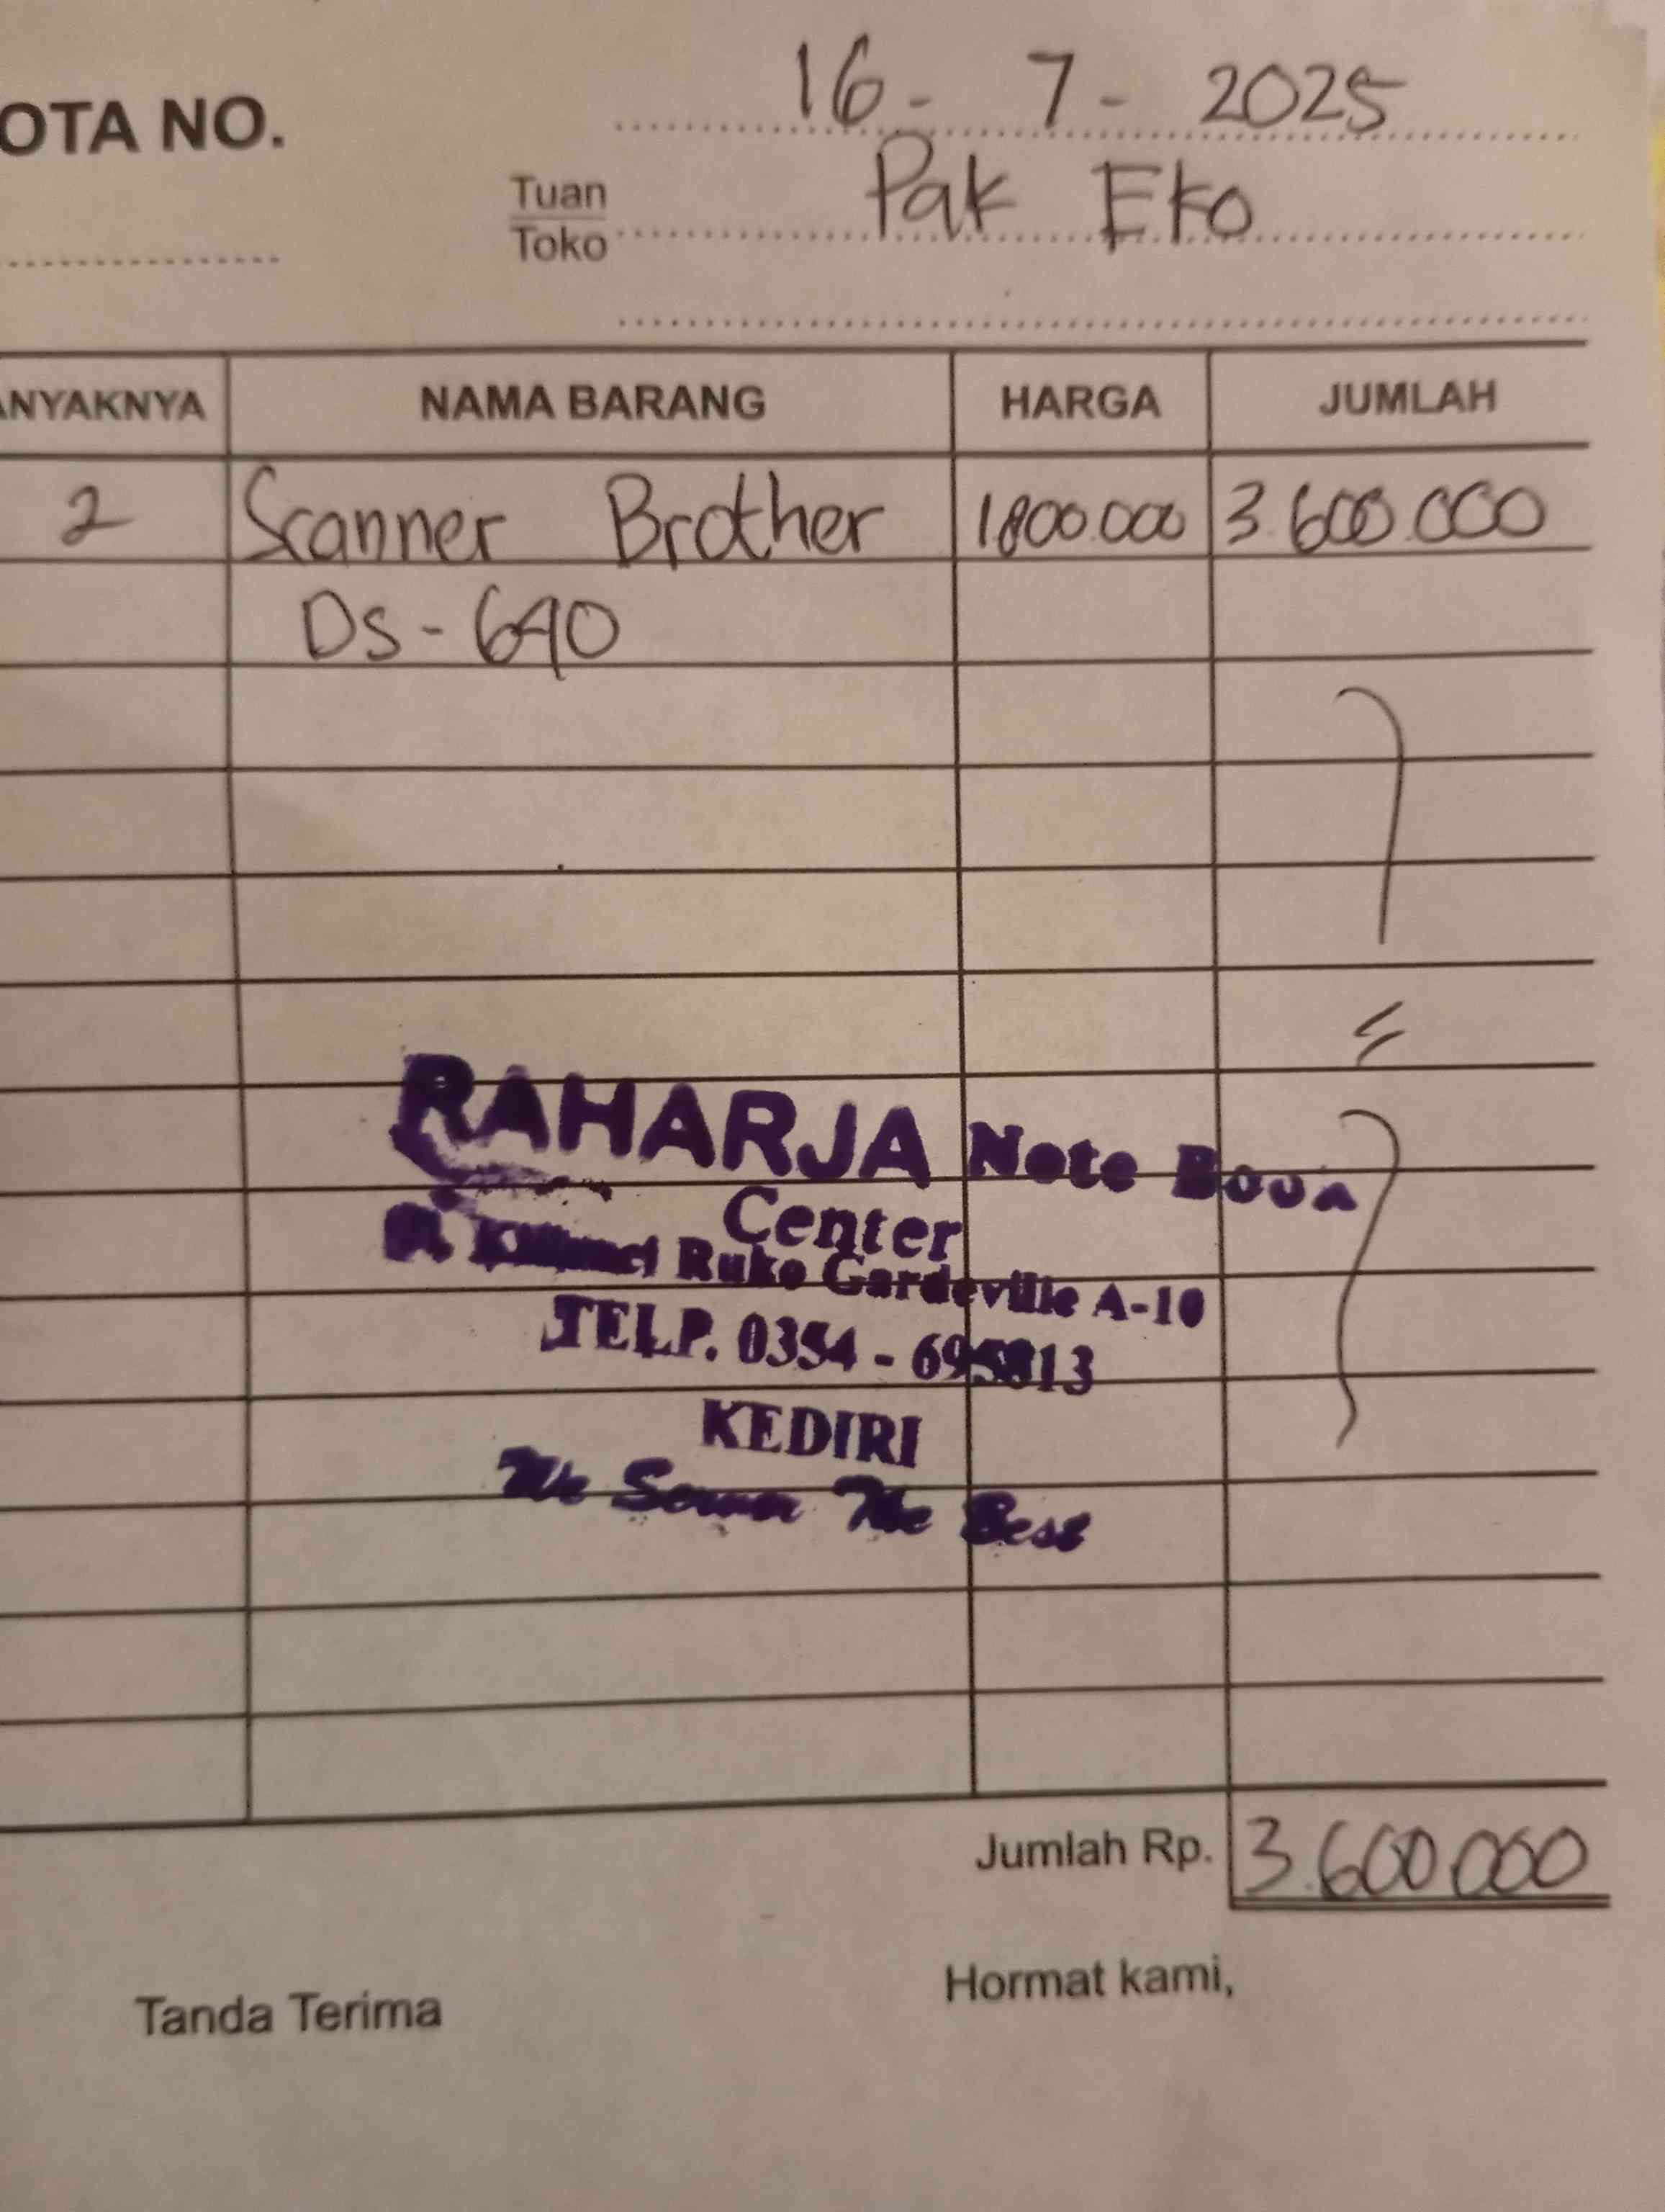 OTA NO.
16 - 7 - 2025
Tuan
Toko
Pak Eko
ANYAKNYA NAMA BARANG HARGA JUMLAH
2 Scanner Brother 1.800.000 3.600.000
Ds-640
RAHARJA Note Book
Center
Ruko Gardeville A-10
TELP. 0354 - 695813
KEDIRI
The Best
Jumlah Rp. 3.600.000
Tanda Terima Hormat kami,